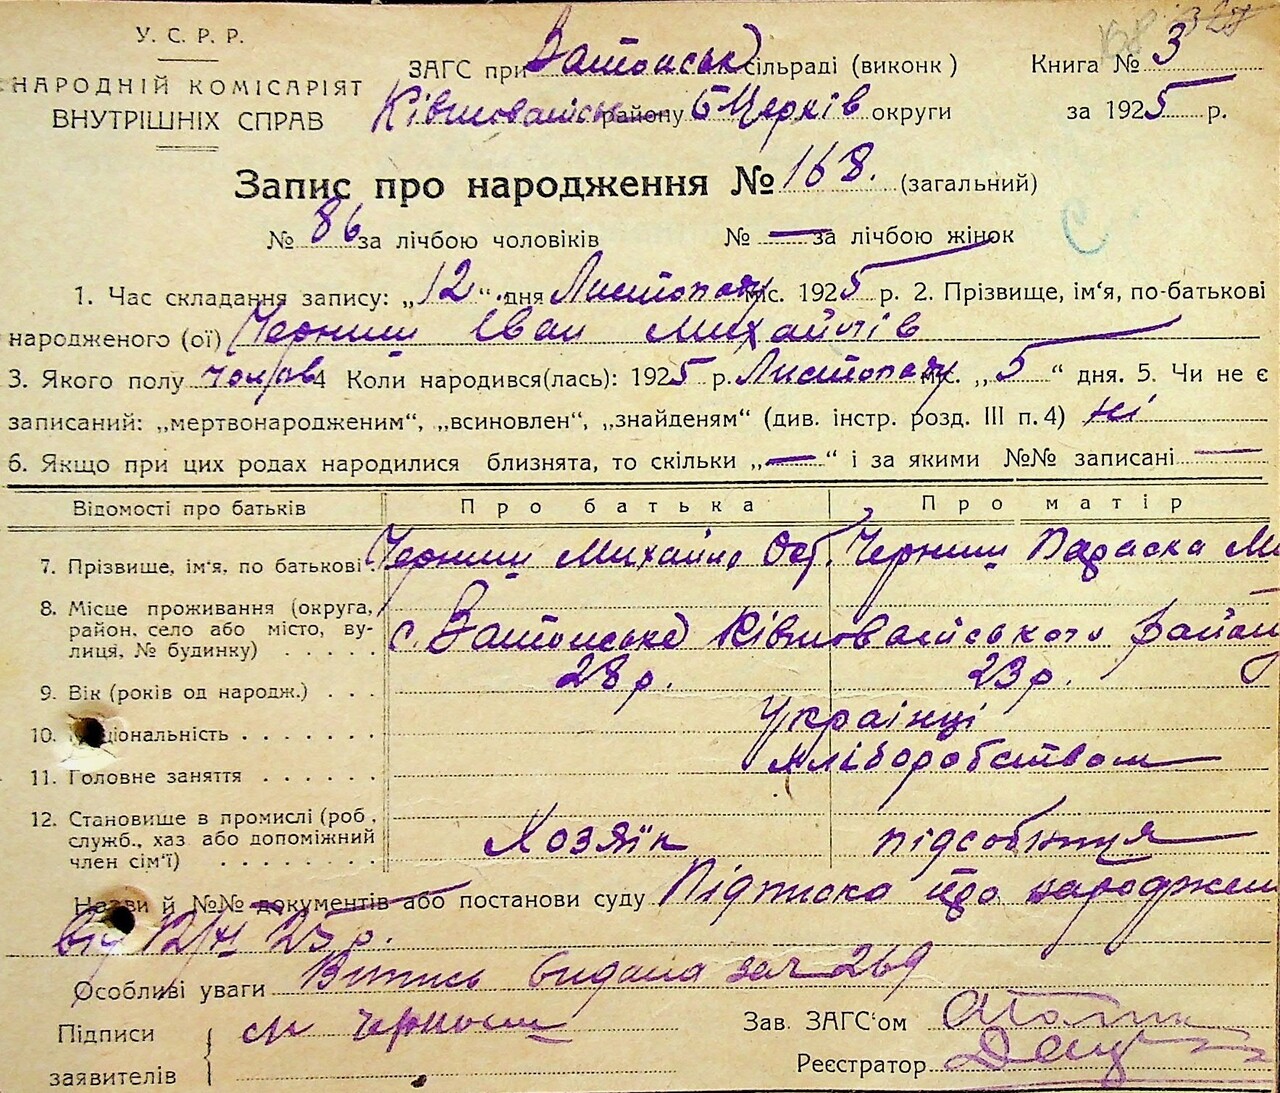 У. С. Р. Р.
НАРОДНІЙ КОМІСАРІЯТ
ВНУТРІШНІХ СПРАВ
168 328
ЗАГС при Затонськ сільраді (виконк) Книга № 3
району Б Церків округи за 1925 р.
Запис про народження № 168. (загальний)
№ 86 за лічбою чоловіків № — за лічбою жінок
1. Час складання запису: „12“ дня Листопаду міс. 1925 р. 2. Прізвище, ім‘я, по-батькові
народженого (ої) Черниш Іван Михайлів
3. Якого полу чолов 4 Коли народився(лась): 1925 р. Листопаду міс. „5“ дня. 5. Чи не є
записаний: „мертвонародженим“, „всиновлен“, „знайденям“ (див. інстр. розд. III п. 4) ні
6. Якщо при цих родах народилися близнята, то скільки „—“ і за якими №№ записані —
Відомості про батьків Про батька Про матір
7. Прізвище, ім‘я, по батькові Черниш Михайло Ост. Черниш Параска Ми
8. Місце проживання (округа, район, село або місто, вулиця, № будинку) с. Затонське району
9. Вік (років од народж.) 28 р. 23 р.
10. Національність Українці
11. Головне заняття хліборобством
12. Становище в промислі (роб., служб., хаз або допоміжний член сім‘ї) Хозяїн підсобниця
Назви й №№ документів або постанови суду Підписка про народжен
від 12/XI 25 р.
Особливі уваги Витись видана за № 269
Підписи заявителів Черниш
Зав. ЗАГС‘ом
Реєстратор